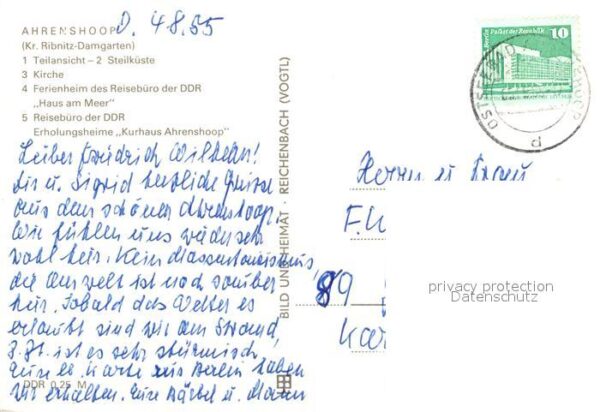 AHRENSHOOP
(Kr. Ribnitz-Damgarten)
1 Teilansicht – 2 Steilküste
3 Kirche
4 Ferienheim des Reisebüro der DDR
„Haus am Meer"
5 Reisebüro der DDR
Erholungsheime „Kurhaus Ahrenshoop"
D. 4.8.85
Lieber Friedrich Wilhelm!
Dir u. Sigrid herzliche Grüsse
aus dem schönen Ahrenshoop.
Wir fühlen uns wieder sehr
wohl hier. Kein Massentourismus,
die Umwelt ist noch sauber
hier. Sobald das Wetter es
erlaubt sind wir am Strand
z.Zt. ist es sehr stürmisch,
Eure Karte aus Berlin haben
wir erhalten. Eure Bärbel u. Mann
DDR 0,25 M
BILD UND HEIMAT · REICHENBACH (VOGTL)
Berlin Palast der Republik
10
OSTSEEBAD
Herrn u Frau
F.W
89
Kar
privacy protection
Datenschutz